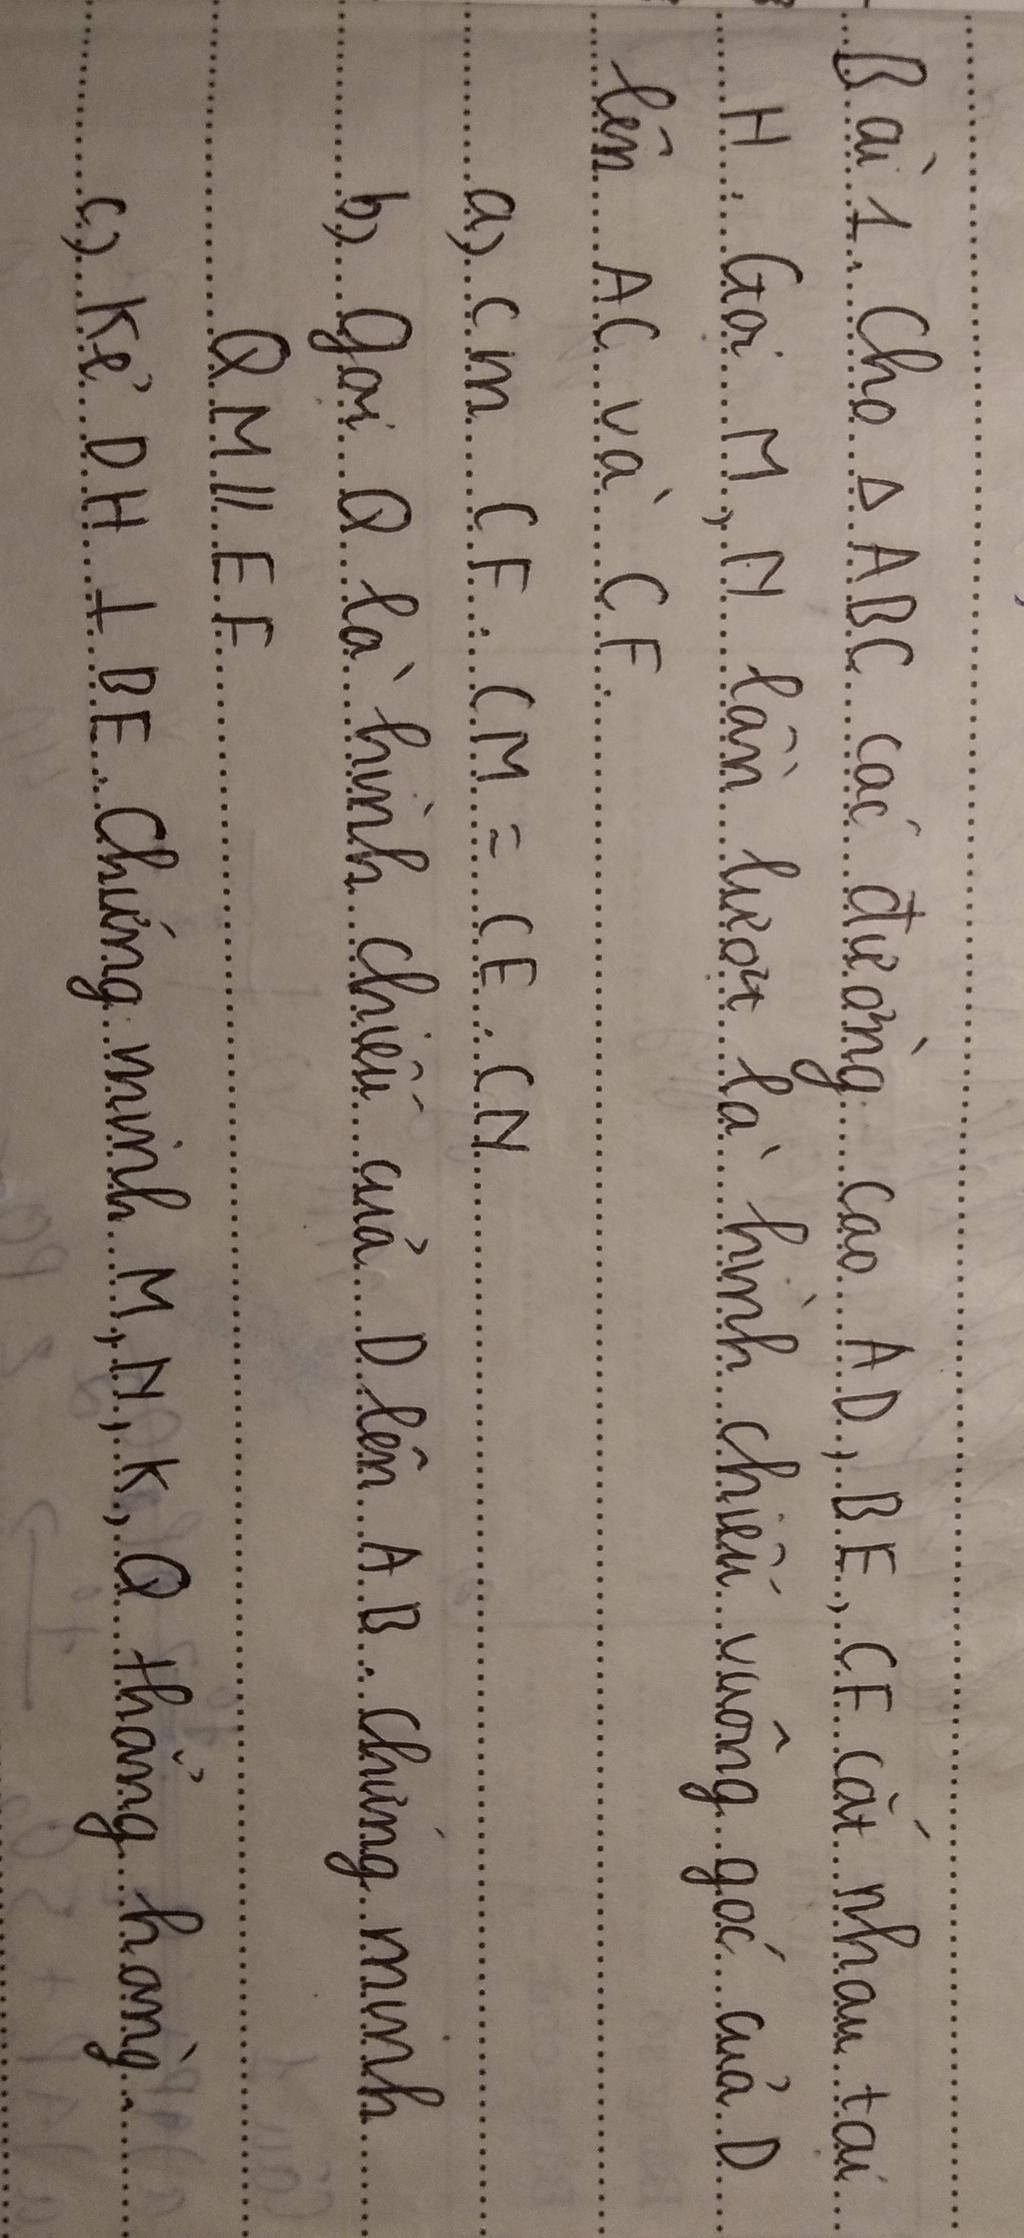 Bài 1. Cho Δ ABC các đường cao AD, BE, CF cắt nhau tại
H. Gọi M, N lần lượt là hình chiếu vuông góc của D
lên AC và CF.
a, cm CF. CM = CE. CN
b), Gọi Q là hình chiếu của D lên AB. Chứng minh
QM // EF
c), Kẻ DH ⊥ BE. Chứng minh M, N, K, Q thẳng hàng.